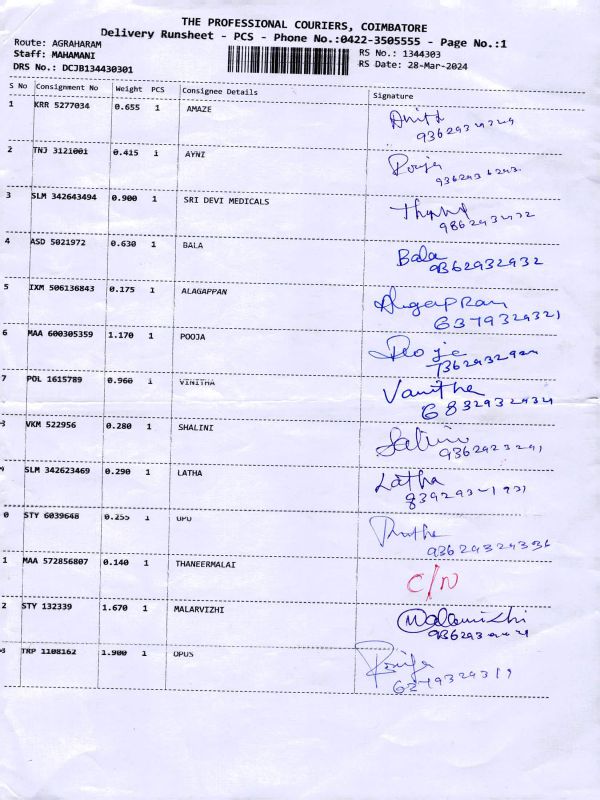 THE PROFESSIONAL COURIERS, COIMBATORE
Delivery Runsheet - PCS - Phone No.:0422-3505555 - Page No.:1
Route: AGRAHARAM
Staff: MAHAMANI
DRS No.: DCJB134430301
RS No.: 1344303
RS Date: 28-Mar-2024
S No Consignment No Weight PCS Consignee Details Signature
1 KRR 5277034 0.655 1 AMAZE
2 TNJ 3121001 0.415 1 AYNI
3 SLM 342643494 0.900 1 SRI DEVI MEDICALS
4 ASD 5021972 0.630 1 BALA Bala
9362932932
5 IXM 506136843 0.175 1 ALAGAPPAN
6379329321
6 MAA 600305359 1.170 1 POOJA
7 POL 1615789 0.960 1 VINITHA Vanitha
8 VKM 522956 0.280 1 SHALINI
SLM 342623469 0.290 1 LATHA Latha
0 STY 6039648 0.255 1 OPO
1 MAA 572856807 0.140 1 THANEERMALAI C/N
2 STY 132339 1.670 1 MALARVIZHI
3 TRP 1108162 1.900 1 OPUS